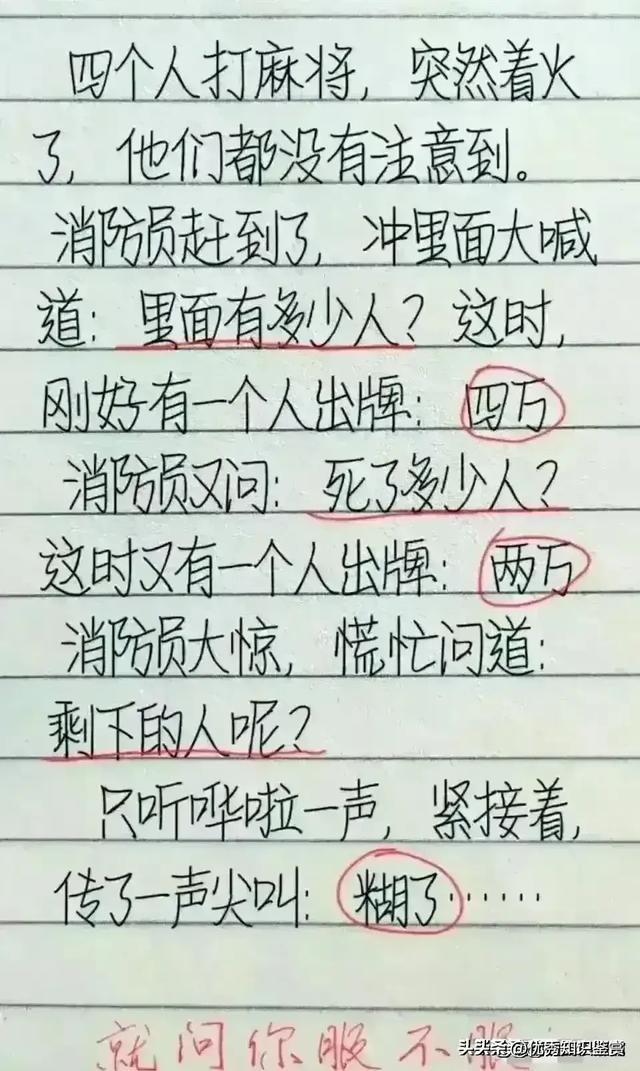 四个人打麻将，突然着火
了，他们都没有注意到。
消防员赶到了，冲里面大喊
道：里面有多少人？这时，
刚好有一个人出牌：四万
消防员又问：死了多少人？
这时又有一个人出牌：两万
消防员大惊，慌忙问道：
剩下的人呢？
只听哗啦一声，紧接着，
传了一声尖叫：糊了……
就问你服不服
头条 @优秀知识鉴赏